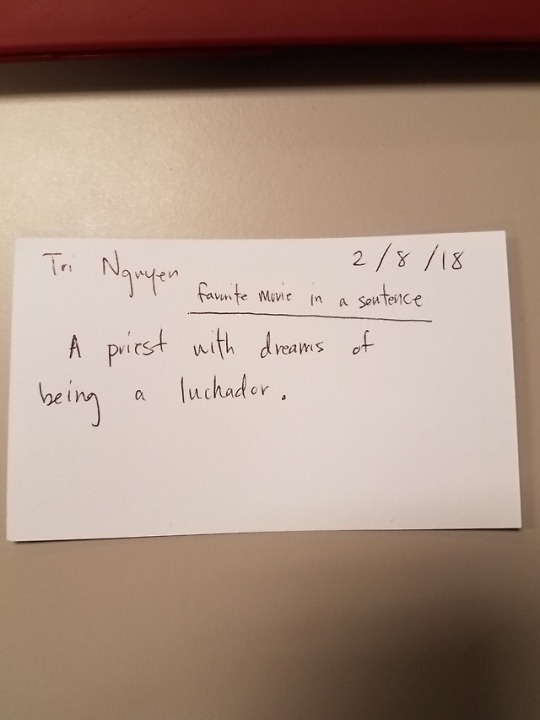 Tri Nguyen 2/8/18
favorite movie in a sentence
A priest with dreams of
being a luchador.